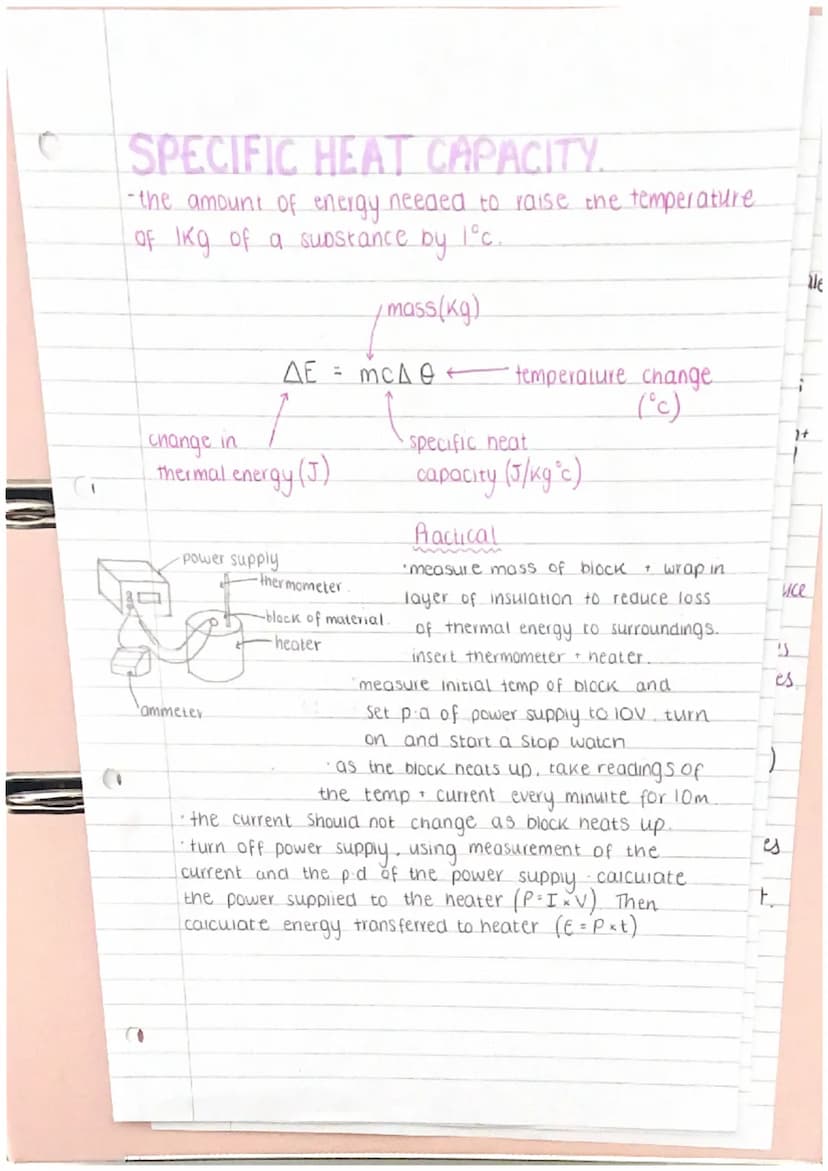 SPECIFIC HEAT CAPACITY.
-the amount of energy needed to raise the temperature
of 1Kg of a substance by 1°c.
mass(Kg)
ΔE = mcΔθ
temperature change
(°c)
change in
thermal energy (J)
specific heat
capacity (J/Kg°c)
Practical
power supply
thermometer.
block of material.
heater
ammeter
·measure mass of block + wrap in
layer of insulation to reduce loss
of thermal energy to surroundings.
insert thermometer + heater.
·measure initial temp of block and
set p.d of power supply to 10V. turn
on and start a stop watch
·as the block heats up, take readings of
the temp + current every minuite for 10m.
·the current should not change as block heats up.
·turn off power supply, using measurement of the
current and the p.d of the power supply · calculate
the power supplied to the heater (P=I×V) Then
calculate energy transferred to heater (E=P×t)
uce
es
)
es
t.